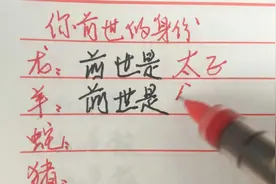 你前世的身份
龙：前世是 太子
羊：前世是
蛇：
猪：